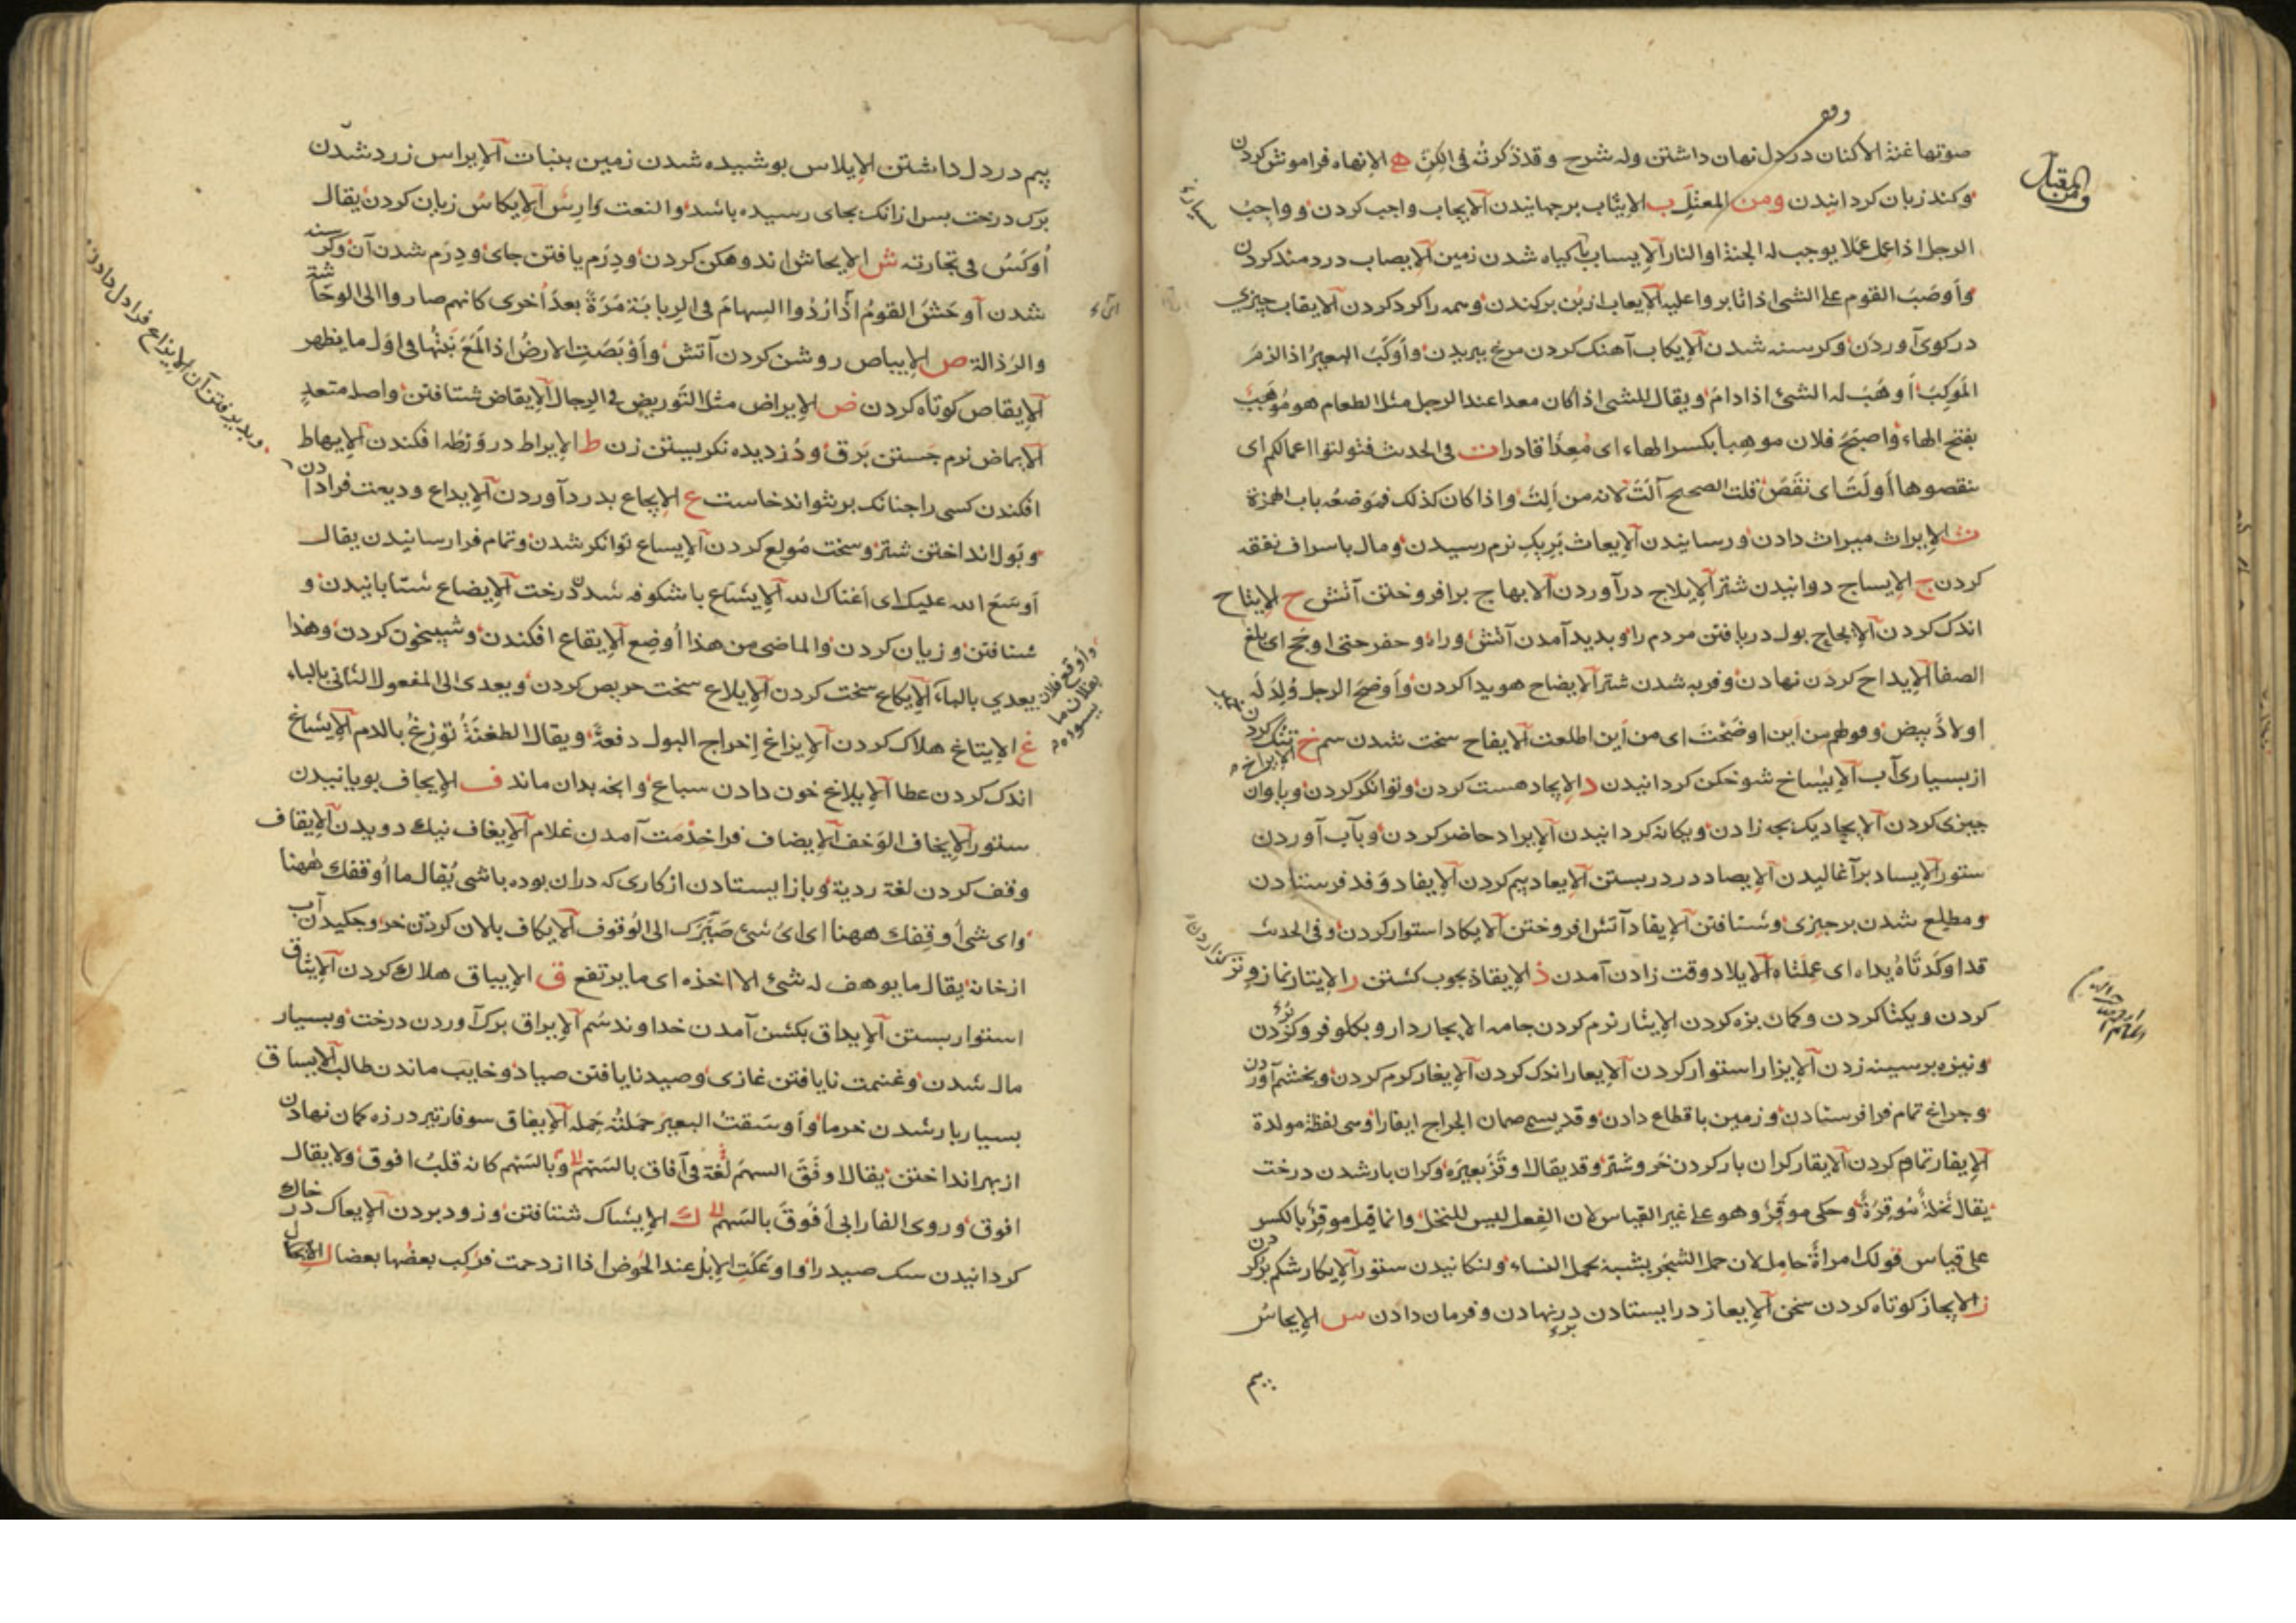 صوتها غنة الاكنان در دل نهان داشتن وله شرح وقد ذكرته فى الكن ه الانهاه فراموش كردن
وكند زبان كردانيدن ومن المعتل ب الايثاب برجهانيدن الايجاب واجب كردن وواجب
الرجل اذا عمل عملا يوجب له الجنة او النار الايساب با كياه شدن زمين الايصاب دردمند كردن
وأوصب القوم على الشى اذا ثابروا عليه الايعاب از بن بركندن وهمه را كرد كردن الايقاب چيزى
در كوى آوردن وكرسنه شدن الايكاب آهنك كردن مرغ بپريدن وأوكب البعير اذا لزم
الموكب أوهب له الشئ اذا دام ويقال للشى اذا كان معدا عند الرجل مثل الطعام هو موهب
بفتح الهاء واصبح فلان موهبا بكسر الهاء اى معدا قادرا ت فى الحدث فتولتوا اعمالكم اى
تنقصوها أولت اى نقص قلت الصحيح آلت لانه من ألت واذا كان كذلك فموضعه باب الهمزة
ث الايراث ميراث دادن ورسانيدن الايعاث بريك نرم رسيدن ومال باسراف نفقه
كردن ج الايساج دوانيدن شتر الايلاج درآوردن الايهاج برافروختن آتش ح الايتاح
اندك كردن الايجاح بول دريافتن مردم را وبديد آمدن آتش وراه وحفر حتى اوجح اى بلغ
الصفا الايداح كردن نهادن وفربه شدن شتر الايضاح هويدا كردن وأوضح الرجل ولد له
اولاد بيض وقولهم من اين اوضحت اى من اين اطلعت الايقاح سخت شدن سم خ تنك كردن
از بسيارى آب الايساخ شوخكن كردانيدن د الايجاد هست كردن وتوانكر كردن وباوان
چيزى كردن الايحاد يك بچه زادن ويكانه كردانيدن الايراد حاضر كردن وبآب آوردن
ستور الايساد برآغاليدن الايصاد در دربستن الايعاد بيم كردن الايفاد وفد فرستادن
ومطلع شدن برچيزى وشتافتن الايقاد آتش افروختن الايكاد استوار كردن وفى الحدث
قد اوكدتاه يداه اى عملتاه الايلاد وقت زادن آمدن ذ الايقاذ بچوب كشتن ر الايتار نماز وتر
كردن ويكتا كردن وكمان بزه كردن الايثار نرم كردن جامه الايجار دارو بكلو فرو كردن
ونيزه برسينه زدن الايزار استوار كردن الايعار اندك كردن الايغار كرم كردن وبخشم آوردن
وخراج تمام فرا فرستادن وزمين باقطاع دادن وقد يسمى ضمان الخراج ايغارا وهى لفظة مولدة
الايفار تمام كردن الايقار كران بار كردن خر وشتر وقد يقال اوقر بعيره وكران بار شدن درخت
يقال نخلة موقرة وحكى موقر وهو على غير القياس لان الفعل ليس للنخل وانما قيل موقر بالكسر
على قياس قولك امرأة حامل لان حمل الشجر يشبه بحمل النساء ولنكانيدن ستور الايكار شكم پر كردن
ز الايجاز كوتاه كردن سخن الايعاز در ايستادن درنهادن وفرمان دادن س الايجاس
بيم
بيم در دل داشتن الايلاس پوشيده شدن زمين بنبات الايراس زرد شدن
برك درخت پس ازانك بجاى رسيده باشد والنعت وارس الايكاس زيان كردن يقال
أوكس فى تجارته ش الايحاش اندوهكن كردن ودرم يافتن جاى ودرم شدن آن وكرسنه
شدن أوحش القوم اذا ردوا السهام فى الربابة مرة بعد أخرى كانهم صاروا الى الوحاشة
والرذالة ص الايباص روشن كردن آتش وأوبصت الارض اذا المع نبتها فى اول ما يظهر
الايقاص كوتاه كردن ض الايراض مثل التوريض فى الرجال الايقاض شتافتن واصله متعد
الايماض نرم جستن برق ودزديده نكريستن زن ط الايراط در ورطه افكندن الايهاط
افكندن كسى را چنانك برنتواند خاست ع الايجاع بدرد آوردن الايداع وديعت فرا دادن
وبول انداختن شتر وسخت مولع كردن الايساع توانكر شدن وتمام فرا رسانيدن يقال
أوسع الله عليك اى أغناك الله الايشاع باشكوفه شدن درخت الايضاع شتابانيدن و
شتافتن وزيان كردن والماضى من هذا أوضع الايقاع افكندن وشبيخون كردن وهذا
يعدى بالباء الايكاع سخت كردن الايلاع سخت حريص كردن ويعدى الى المفعول الثانى بالباء
غ الايتاغ هلاك كردن الايزاغ إخراج البول دفعة ويقال الطعنة توزغ بالدم الايشاغ
اندك كردن عطا الايلاغ خون دادن سباع وانچه بدان ماند ف الايجاف پويانيدن
ستور الايخاف الوخف الايضاف فرا خدمت آمدن غلام الايغاف نيك دويدن الايقاف
وقف كردن لغة ردية وبازايستادن از كارى كه دران بوده باشى يقال ما أوقفك ههنا
واى شى أوقفك ههنا اى اى شئ صيرك الى الوقوف الايكاف پالان كردن خر وچكيدن آب
از خانه يقال ما يوهف له شئ الا اخذه اى ما يرتفع ق الايباق هلاك كردن الايثاق
استوار بستن الايداق بكشن آمدن خداوند سم الايراق برك آوردن درخت وبسيار
مال شدن وغنيمت نايافتن غازى وصيد نايافتن صياد وخايب ماندن طالب الايساق
بسيار بار شدن خرما وأوسقت البعير حملته حمله الايفاق سوفار تير در زه كمان نهادن
از بهر انداختن يقال اوفق السهم لغة فى آفاق بالسهم وبالسهم كانه قلب افوق ولا يقال
افوق وروى الفارابى أفوق بالسهم ك الايشاك شتافتن وزود بردن الايعاك در خاك
كردانيدن سك صيد را واوعكت الابل عند الحوض اذا ازدحمت فركب بعضها بعضا ل الايحال
ويديرفتن آن الايزاع فرا دل دادن